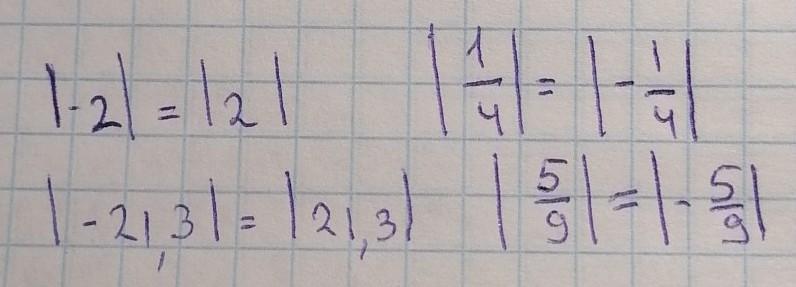 |-2| = |2| |1/4| = |-1/4|
|-21,3| = |21,3| |5/9| = |-5/9|